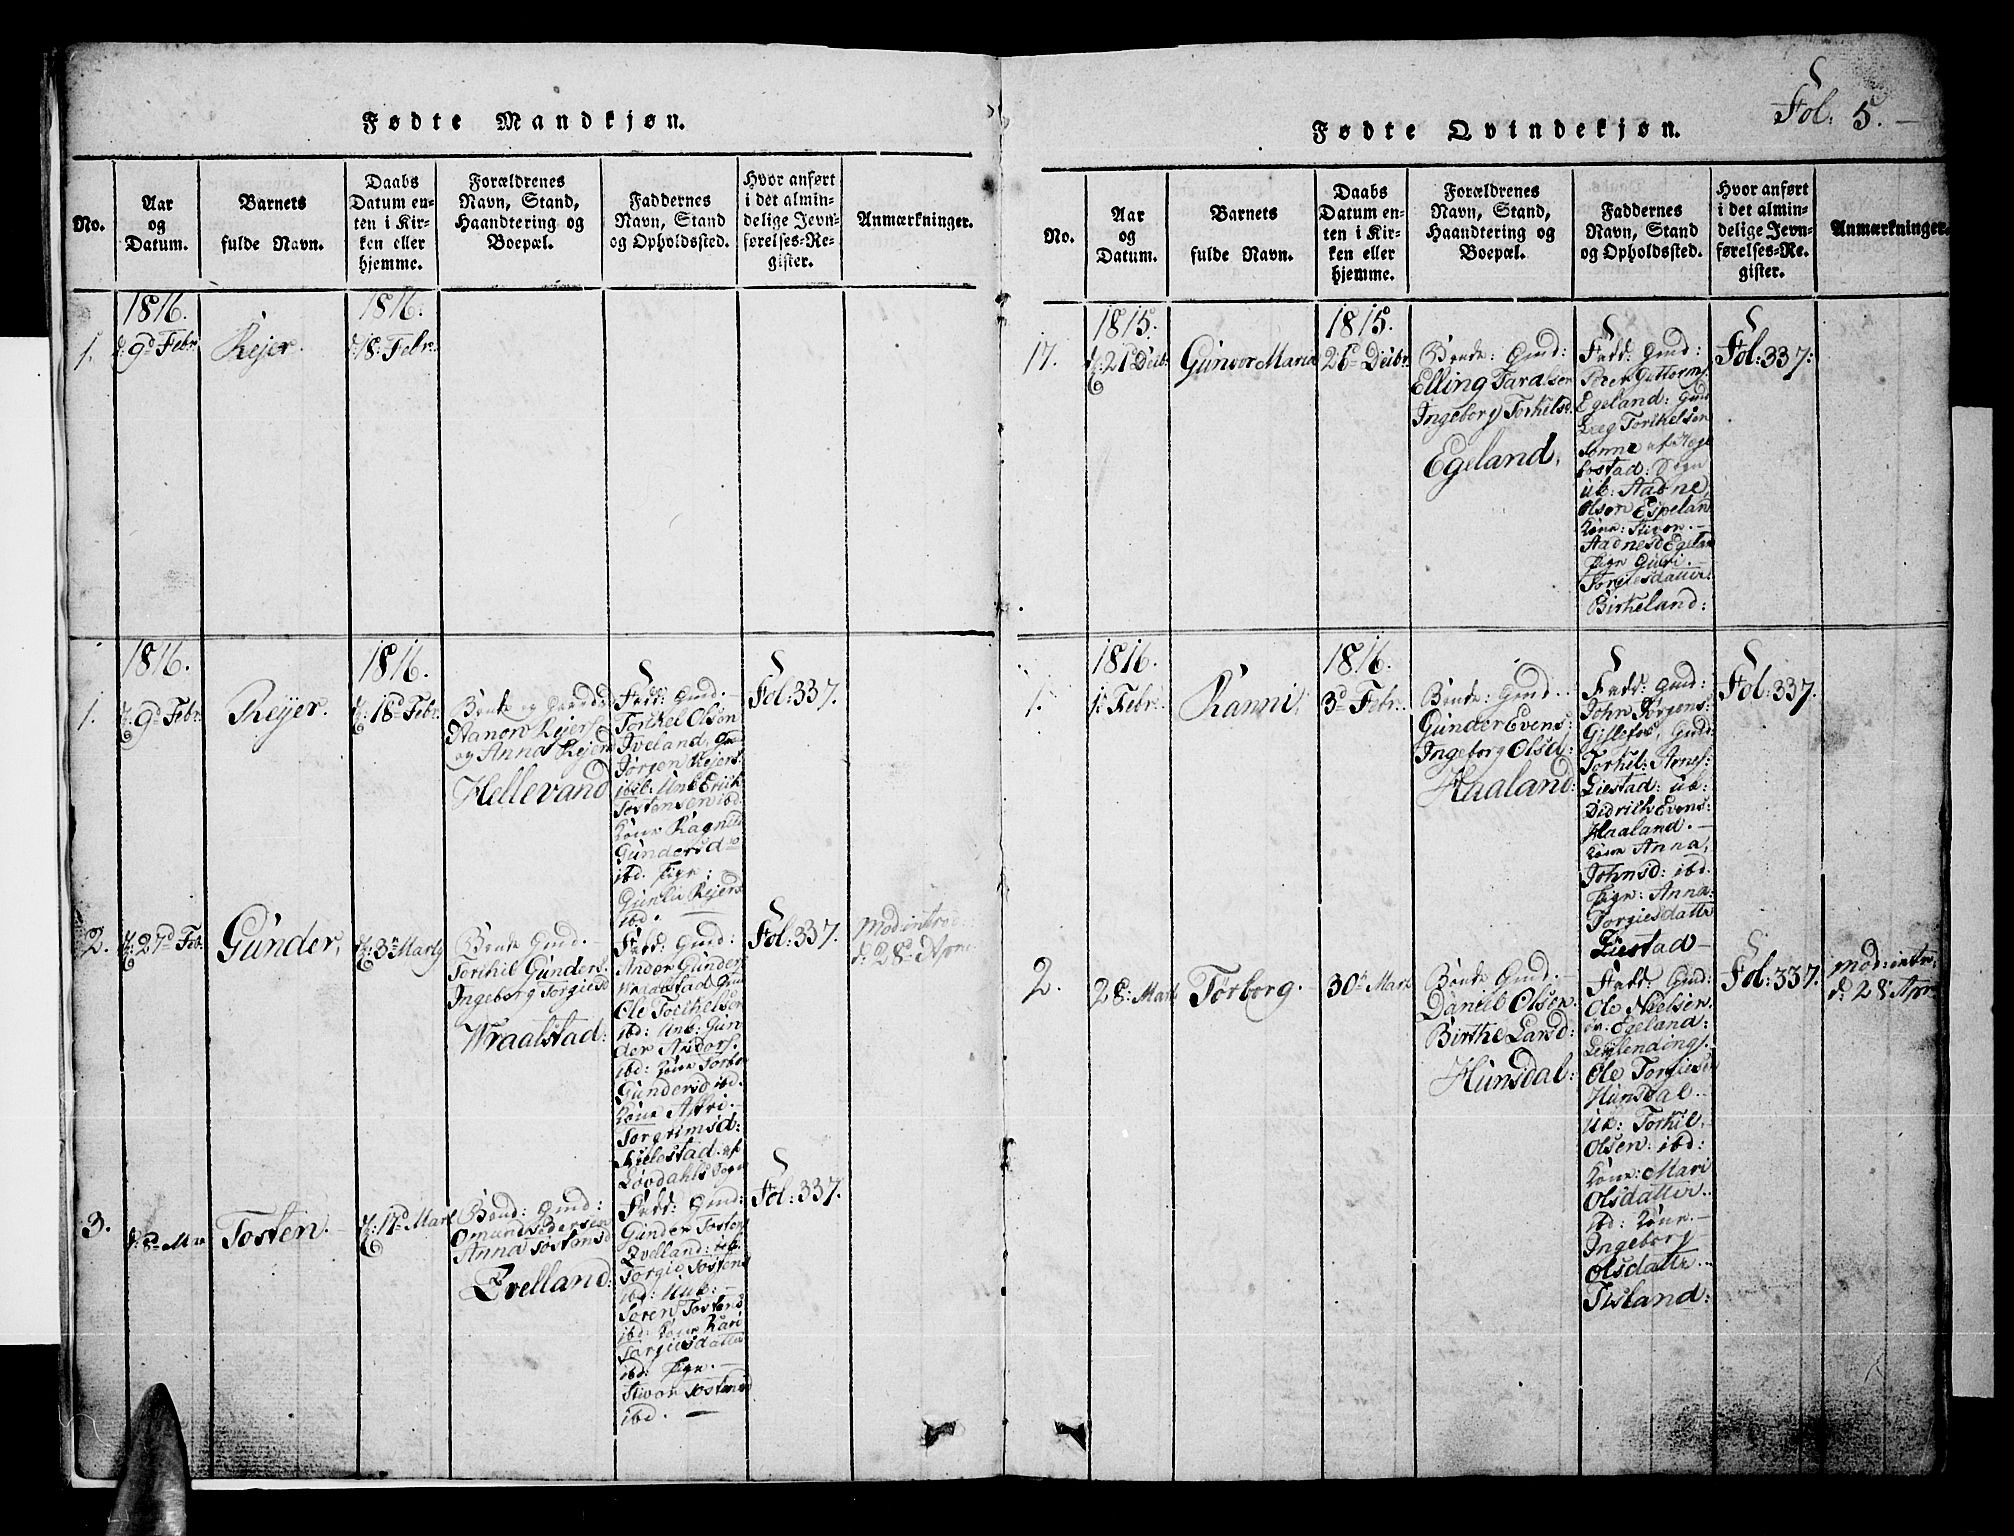 Fødte Mandkjøn.
No.
Aar
og
Datum.
Barnets
fulde Navn.
Daabs
Datum en-
ten i Kir-
ken eller
hjemme.
Forældrenes
Navn, Stand,
Haandtering og
Boepæl.
Faddernes
Navn, Stand
og Opholdssted.
Hvor anført
i det almin-
delige Jevn-
førelses-Re-
gister.
Anmærkninger.
1.
1816.
9d Febr
Rejer.
1816.
18. Febr.
1.
1816.
d: 9d Febr.
Reyer.
1816.
d: 18d Febr.
Bonde og
Rejers.
og Anna Rejers
Hellevand
Fadd: Gmd.
Torkel Olsen
Iveland,
Jørgen Rejers.
ibid. Unk Erich
Tostensen ibd.
Kone Ragnild
Gundersd
ibd. Pige:
Gunild Rejers
ibd.
Fol: 337.
2.
d: 27d Feb.
Gunder,
d: 3die Marty
Bonde Gmd.
Torkil Gunders.
Ingeborg Torgiesd
Wraalstad:
Fadd: Gmd:
Ander Gunders.
Wraalstad Gmd
Ole Torkelsen
ibd: Unk: Gun
der Anders.
ibd: Kone Torbor
Gundersd ibd.
Kone Assri.
Torgrimsd:
Lielestad af
Løvdahls Sogn
Fol: 337.
Mod: introd.
d: 28d Apri
3.
d: 8de Mar
Tosten.
d: 17d Mart
Bond: Gmd:
Omund Pedersen
Anna Tostensd
Evelland:
Fadd: Gmd:
Gunder Tostens
Evelland: ibd.
Torgie Tostens
ibd: Unk:
Søren Tostens
ibd: Kone Kari
Torgiesdatter
ibd: Pige.
Sivor Tostensd
ibd.
Fol: 337.
Fol: 5.
Fødte Qvindekjøn.
No.
Aar
og
Datum.
Barnets
fulde Navn.
Daabs
Datum en-
ten i Kir-
ken eller
hjemme.
Forældrenes
Navn, Stand,
Haandtering og
Boepæl.
Faddernes
Navn, Stand
og Opholdssted.
Hvor anført
i det almin-
delige Jevn-
førelses-Re-
gister.
Anmærkninger.
17.
1815.
d: 21d Decbr
Gunvor Maria
1815.
26d Decbr
Bonde: Gmd:
Elling Taralsen
Ingeborg Torkelsd.
Egeland.
Fadd: Gmd:
Peter Guttorms.
Egeland: Gmd
Torkelsen
Sonne af Hege
bostad: Sogn
uk: Aadne
Olsen Espeland
Kone: Sivor.
Aadnesd Egeland
Pige Guri.
Torgiesdatter:
Birkeland:
Fol: 337:
1.
1816.
1d Febr.
Kanni,
1816.
3d Febr.
Bonde: Gmd..
Gunder Evens:
Ingeborg Olsd:
Haaland:
Fadd: Gmd:
John Jørgens:
Gillefos, Gmd:
Torkil: Arnes:
Liestad: uk:
Didrich Evens:
Haaland.
Kone Anna,
Johnsd: ibd.
Pige: Anna:
Torgiesdatter
Liestad
Fol: 337.
2.
28: Mart
Torborg.
30te Mart
Bonde Gmd.
Daniel Olsen.
Birthe Larsd:
Hunsdal:
Fadd: Gmd:
Ole Nielsen
Egeland:
Ole Torgiesen
Hunsdal.
uk: Torkil,
Olsen: ibd:
Kone: Mari
Olsdatter..
ibd: Kone.
Ingeborg
Olsdatter..
Tisland:
Fol: 337.
Mod: intr:
d: 28 Apr